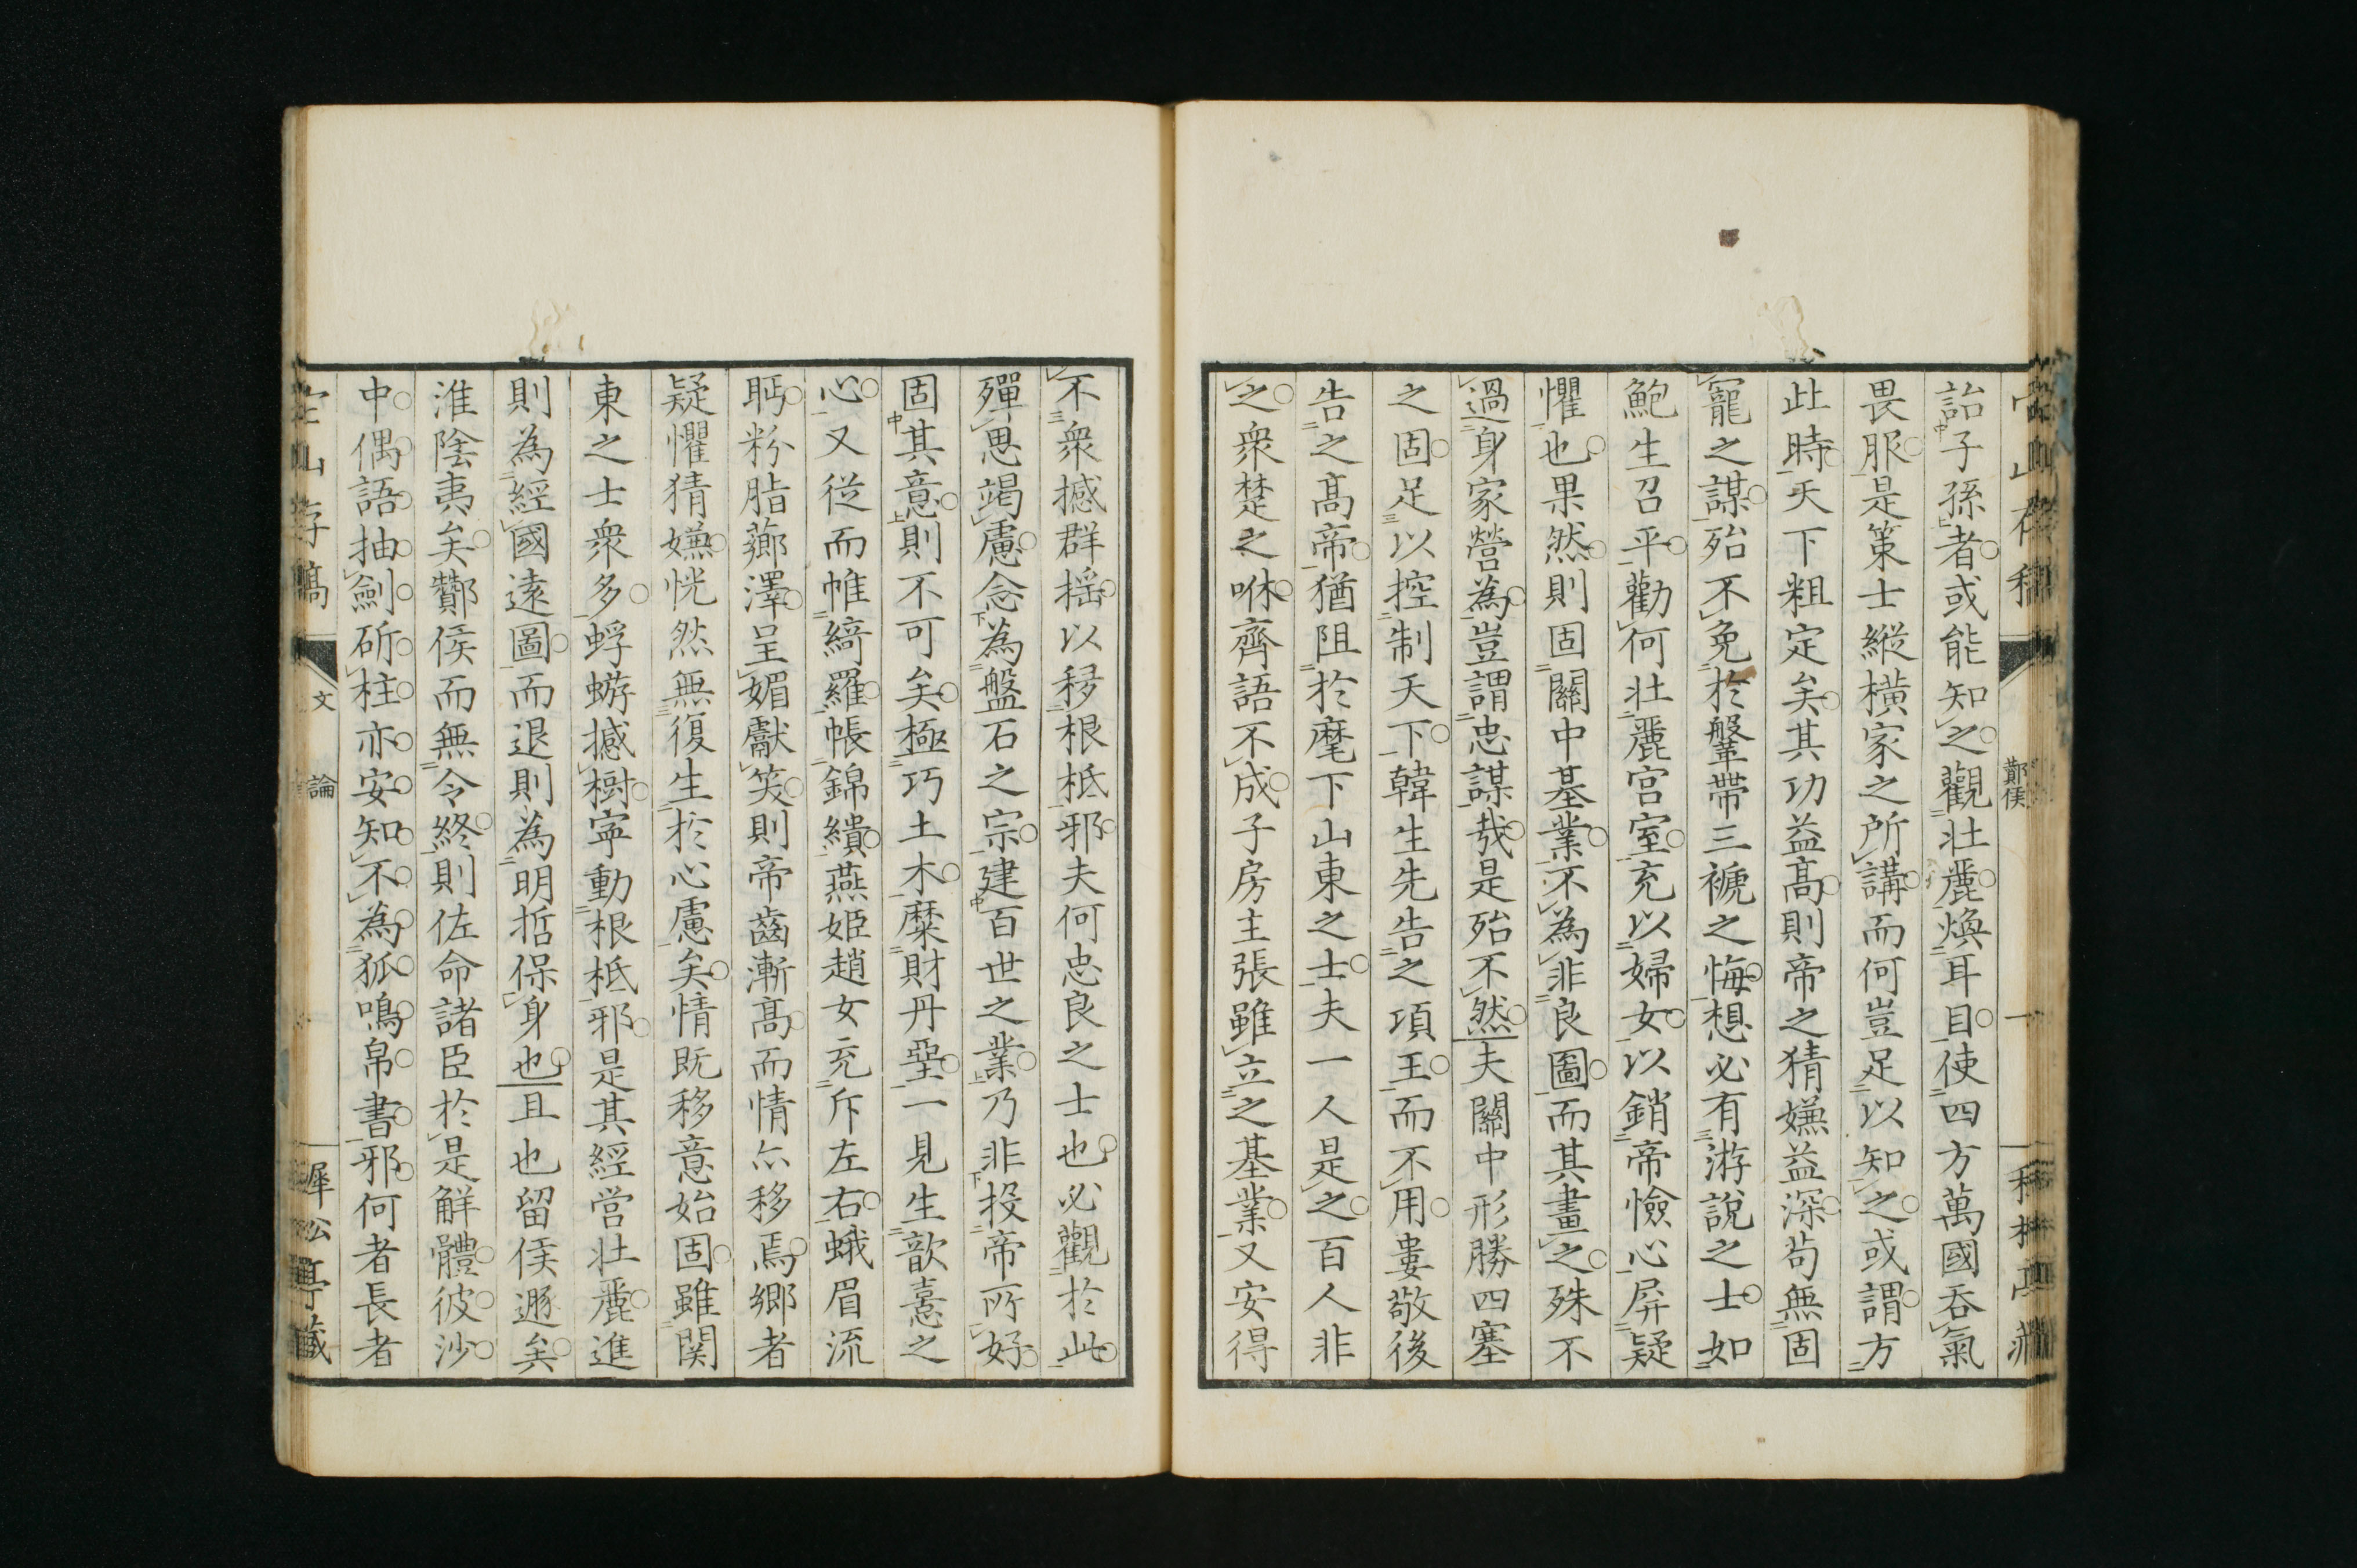 詒子孫者或能知之觀壯麗煥耳目使四方萬國吞氣
畏服是策士縱橫家之所講而何豈足以知之或謂方
此時天下粗定矣其功益高則帝之猜嫌益深茍無固
寵之謀殆不免於鞶帶三褫之悔想必有游說之士如
鮑生召平勸何壯麗宮室充以婦女以銷帝憸心屏疑
懼也果然則固關中基業不為非良圖而其畫之殊不
過身家營為豈謂忠謀哉是殆不然夫關中形勝四塞
之固足以控制天下韓生先告之項王而不用婁敬後
告之高帝猶阻於麾下山東之士夫一人是之百人非
之眾楚之咻齊語不成子房主張雖立之基業又安得
不衆撼群搖以移根柢邪夫何忠良之士也必觀於此
殫思竭慮念為盤石之宗建百世之業乃非投帝所好
固其意則不可矣極巧土木糜財丹堊一見生歆憙之
心又從而帷綺羅帳錦繢燕姬趙女充斥左右蛾眉流
眄粉脂薌澤呈媚獻笑則帝齒漸高而情亦移焉鄉者
疑懼猜嫌恍然無復生於心慮矣情既移意始固雖関
東之士衆多蜉蝣撼樹寧動根柢邪是其經營壯麗進
則為經國遠圖而退則為明哲保身也且也留侯遯矣
淮陰夷矣酇侯而無令終則佐命諸臣於是解體彼沙
中偶語抽劍斫柱亦安知不為狐鳴帛書邪何者長者
文
論
酇侯
一